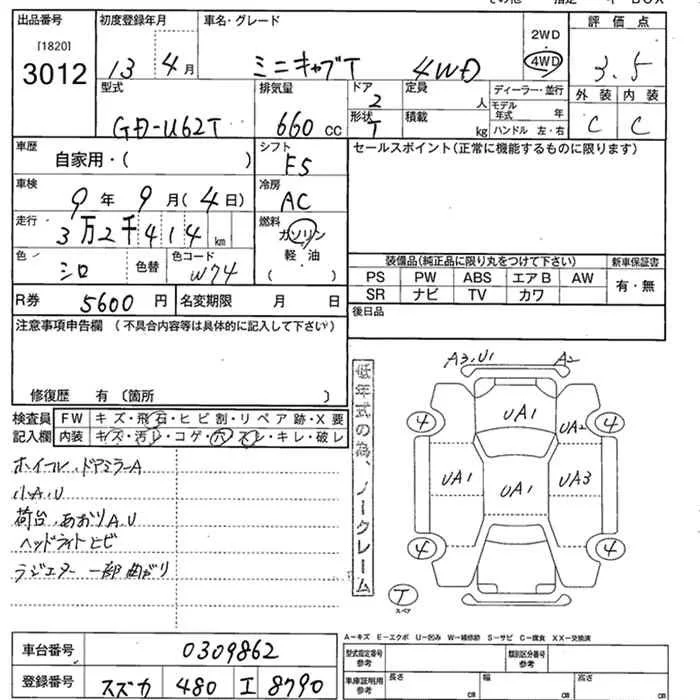 出品番号 初度登録年月 車名・グレード 2WD 評価点
[1820]
3012 13年 4月 ミニキャブT 4WD 4WD 3.5
型式 排気量 ドア 定員 ディーラー・並行 外装 内装
GD-U62T 660 cc 2 人 モデル年式 年 C C
形状 T 積載 kg ハンドル 左・右
車歴 シフト セールスポイント(正常に機能するものに限ります)
自家用・( ) F5
車検 冷房
9年 9月(4日) AC
走行 燃料
3万2千414km ガソリン
軽油
( )
色 色替 色コード
シロ W74
装備品(純正品に限り丸をつけて下さい) 新車保証書
PS PW ABS エアB AW 有・無
SR ナビ TV カワ
R券 5600円 名変期限 月 日 後日品
注意事項申告欄(不具合内容等は具体的に記入して下さい)
修復歴 有〔箇所 〕
低年式の為、ノークレーム
検査員 FW キズ・飛石・ヒビ割・リペア跡・X要
記入欄 内装 キズ・汚レ・コゲ・穴・スレ・キレ・破レ
ホイール、ドアミラーA
小A、U
荷台、あおりA、U
ヘッドライトヒビ
ラジエター 一部曲がり
A3,U1 A2
4 UA1 UA2 4
UA1 UA1 UA3
4 4
T
スペア
A-キズ E-エクボ U-凹み W-補修跡 S-サビ C-腐食 XX-交換済
車台番号 0309862
型式指定番号 参考 類別区分番号 参考
登録番号 スズカ 480 エ 8790
車庫証明用 参考 長さ cm 幅 cm 高さ cm